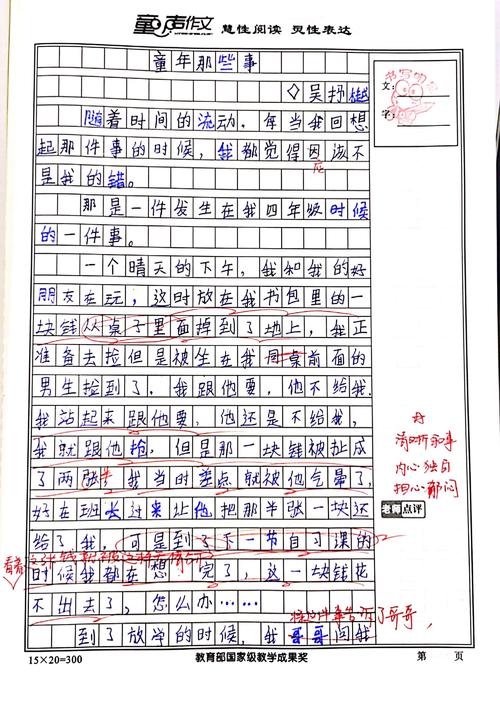 童声作文 慧性阅读 灵性表达
童年那些事
◇吴抒越
随着时间的流动，每当我回想
起那件事的时候，我都觉得因该不
应
是我的错。
那是一件发生在我四年级时候
的一件事。
一个晴天的下午，我和我的好
朋友在玩，这时放在我书包里的一
块钱从桌子里面掉到了地上，我正
准备去捡但是被坐在我同桌前面的
男生捡到了，我跟他要，他不给我，
我站起来跟他要，他还是不给我，
我就跟他抢，但是那一块钱被扯成
了两张，我当时差点就被他气晕了，
好在班长过来让他把那半张一块还
给了我，可是到了下一节自习课的
看着
时候我都在想 完了，这一块钱花
不出去了，怎么办……
到了放学的时候，我哥哥问我
告诉了哥哥
书写
文：
字：
内心独自
担心郁闷
老师点评
15×20=300
教育部国家级教学成果奖
第 页